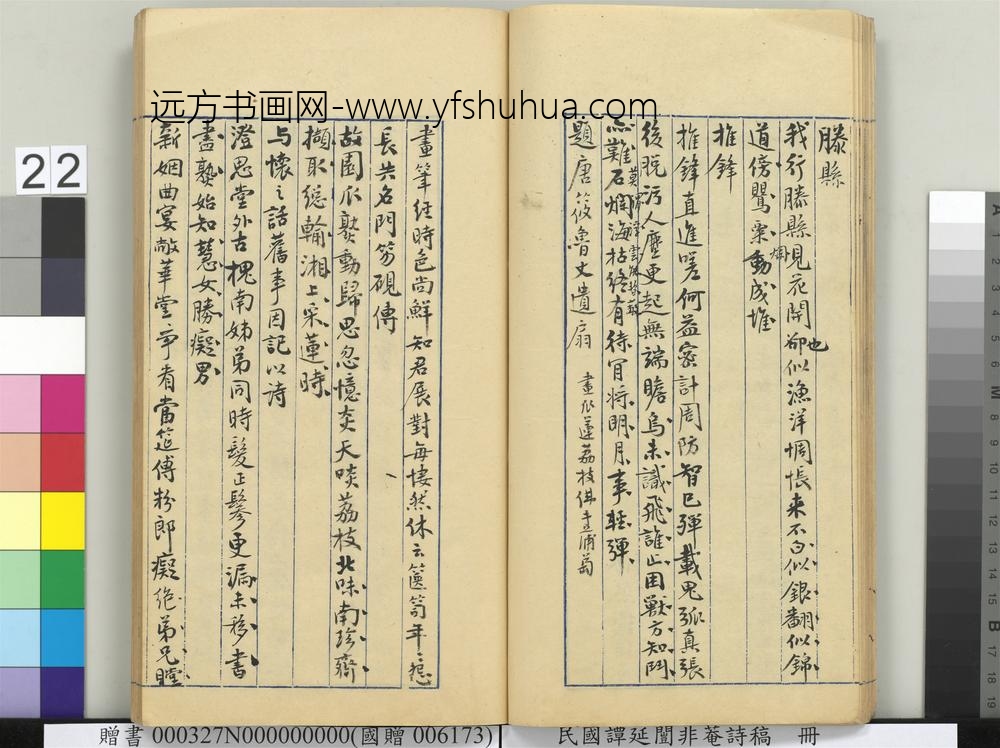 远方书画网-www.yfshuhua.com
22
滕縣
我行滕縣見花開也卻似漁洋惆悵來不白似銀翻似錦
道傍鸎粟動成堆
推鋒
推鋒直進嗟何益家計周防智已彈載鬼弧真張
後脫污人塵更起無端瞻烏未識飛誰止困獸方知鬥
亦難石爛海枯終有待肎將明月事輕彈
題唐筱魯丈遺扇 畫 蓮荔枝佛 蒲萄
畫筆經時色尚鮮知君展對每悽然休云篋笥年
長共名門笏硯傳
故園瓜熟動歸思忽憶炎天啖荔枝北味南珍齊
擷取總輸湘上采蓮時
与懷之話舊事因記以诗
澄思堂外古槐南姊弟同時髮正鬖更漏未移書
盡熟始知慧女勝癡男
新姻曲宴敞華堂爭看當筵傅粉郎癡絶弟兄瞠
贈書 000327N000000000(國贈 006173)
民國譚延闓非菴詩稿 冊
A 1 2 3 4 5 6 M 8 9 10 11 12 13 14 15 B 17 18 19